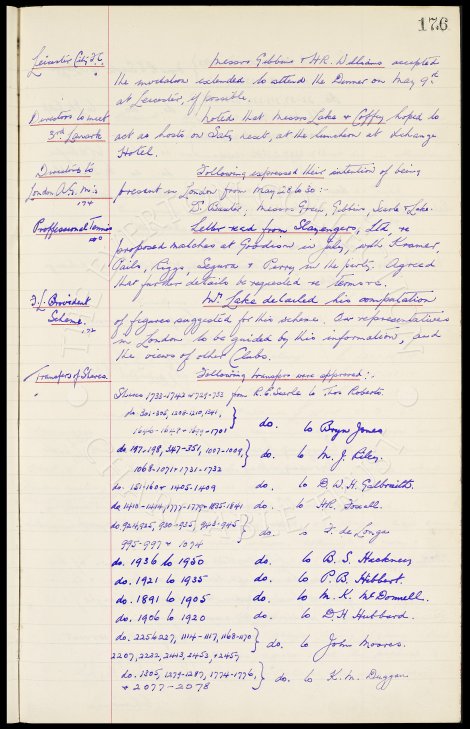 176
Leicester City F.C. Messrs Gibbins & H.R. Williams accepted
the invitation extended to attend the Dinner on May 9th
at Leicester, if possible.
Directors to meet Noted that Messrs Lake & Coffey hoped to
3rd Lanark act as hosts on Satdy next, at the luncheon at Exchange
Hotel.
Directors to Following expressed their intention of being
London A.G. M's present in London from May 28 to 30:-
174
Dr Baxter, Messrs Green, Gibbins, Searle & Lake.
Proffessional Tennis Letter recd from Slazengers, Ltd re
proposed matches at Goodison in July, with Kramer,
Pails, Riggs, Segura & Perry in the party. Agreed
that further details be requested re terms etc.
F.L. Provident Mr Lake detailed his computation
Scheme. 172 of figures suggested for this scheme. Our representatives
in London to be guided by this information, and
the views of other Clubs.
Transfers of Shares Following transfers were approved:-
Shares 1733-1742 & 729-733 from R.E. Searle to Thos Roberts.
do. 301-305, 1208-1210, 1341,
1646-1648 & 1699-1701 do. to Bryn Jones
do 187-198, 347-351, 1007-1009,
1068-1071 & 1731-1732 do. to M. J. Riley.
do. 151-160 & 1405-1409 do. to D. W. H. Galbraith.
do. 1410-1414, 1777-1779 & 1835-1841 do. to H.R. Fowell.
do. 924, 925, 930-935, 943-945
995-997 & 1074 do. to F. de Longa
do. 1936 to 1950 do. to B. S. Hackney
do. 1921 to 1935 do. to P. B. Hibbert.
do. 1891 to 1905 do. to M. K. McDonnell.
do. 1906 to 1920 do. to D. H Hubbard.
do. 2256227, 1114-1117, 1168-1170
2207, 2232, 2443, 2453, & 2457 do. to John Moores.
do. 1305, 1279-1287, 1774-1776,
& 2077-2078 do. to K. M. Duggan